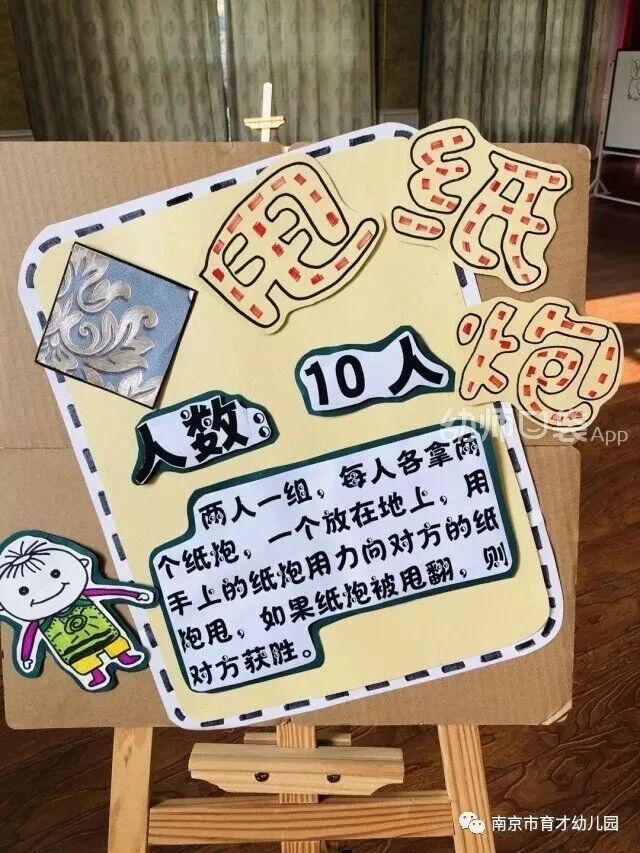 甩纸炮
人数：
10人
两人一组，每人各拿两
个纸炮，一个放在地上，用
手上的纸炮用力向对方的纸
炮甩，如果纸炮被甩翻，则
对方获胜。
幼师口袋App
南京市育才幼儿园